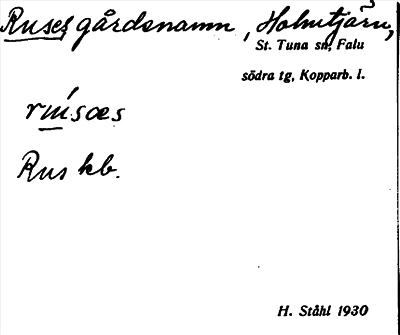 Ruses gårdsnamn, Holmtjärn,
St. Tuna sn, Falu
södra tg, Kopparb. l.
Rus kb.
H. Ståhl 1930